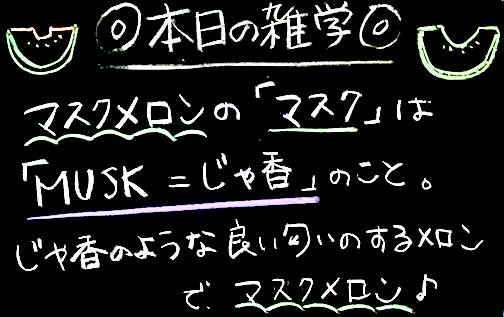 ◎本日の雑学◎
マスクメロンの「マスク」は
「MUSK=じゃ香」のこと。
じゃ香のような良い匂いのするメロン
で、マスクメロン♪